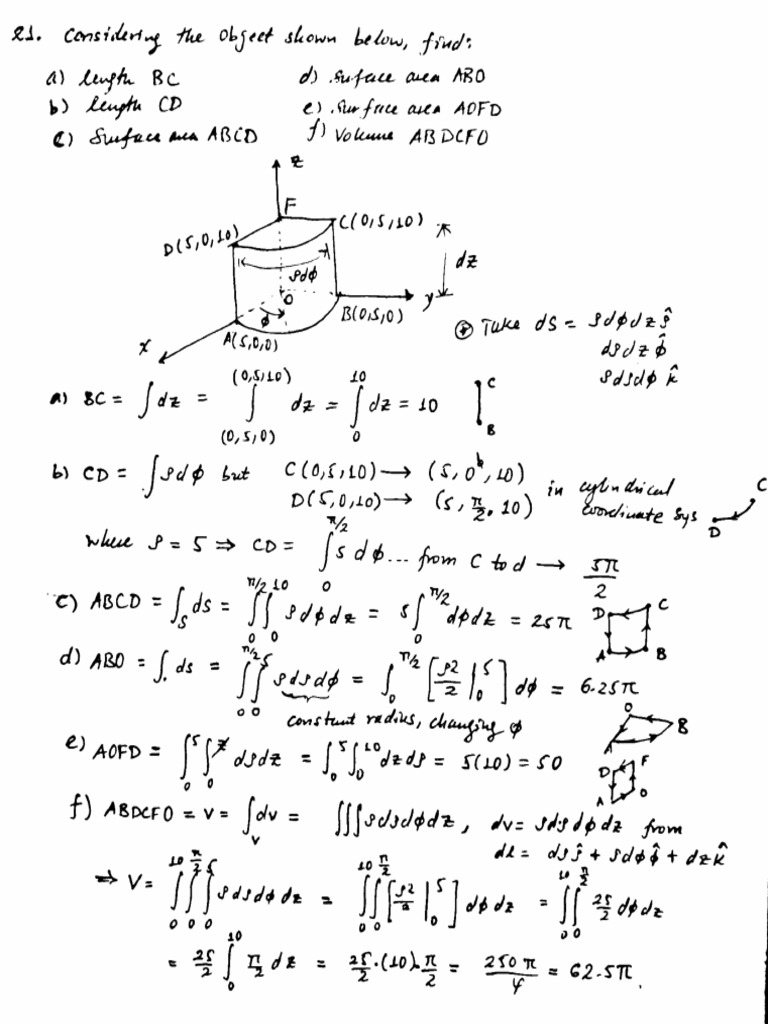 21. Considering the object shown below, find:
a) length BC d) surface area ABO
b) length CD e) surface area AOFD
c) Surface area ABCD f) Volume ABDCFO
z
F
D(5,0,10) C(0,5,10)
ρdφ dz
O
φ B(0,5,0) y
A(5,0,0)
x
⊛ Take ds = ρdφdz ρ̂
dρdz φ̂
ρdρdφ k̂
a) BC = ∫dz = ∫_{(0,5,0)}^{(0,5,10)} dz = ∫_0^{10} dz = 10 C B
b) CD = ∫ρdφ but C(0,5,10) → (5,0,10)
D(5,0,10) → (5, π/2, 10) in cylindrical coordinate sys C D
where ρ = 5 ⇒ CD = ∫_0^{π/2} 5 dφ ... from C to d → 5π/2
c) ABCD = ∫_S ds = ∫_0^{π/2}∫_0^{10} ρdφdz = 5∫_0^{π/2} dφdz = 25π D C A B
d) ABO = ∫ds = ∫_0^{π/2}∫_0^5 ρdρdφ = ∫_0^{π/2} [ρ2/2 |_0^5] dφ = 6.25π
constant radius, changing φ O B A
e) AOFD = ∫_0^5∫_0^z dρdz = ∫_0^5∫_0^{10} dzdρ = 5(10) = 50 D F A O
f) ABDCFO = V = ∫_V dv = ∭ρdρdφdz, dv = ρdρdφdz from
dl = dρρ̂ + ρdφφ̂ + dzk̂
⇒ V = ∫_0^{10}∫_0^{π/2}∫_0^5 ρdρdφdz = ∫_0^{10}∫_0^{π/2} [ρ2/2 |_0^5] dφdz = ∫_0^{10}∫_0^{π/2} 25/2 dφdz
= 25/2 ∫_0^{10} π/2 dz = 25/2·(10)·π/2 = 250π/4 = 62.5π.